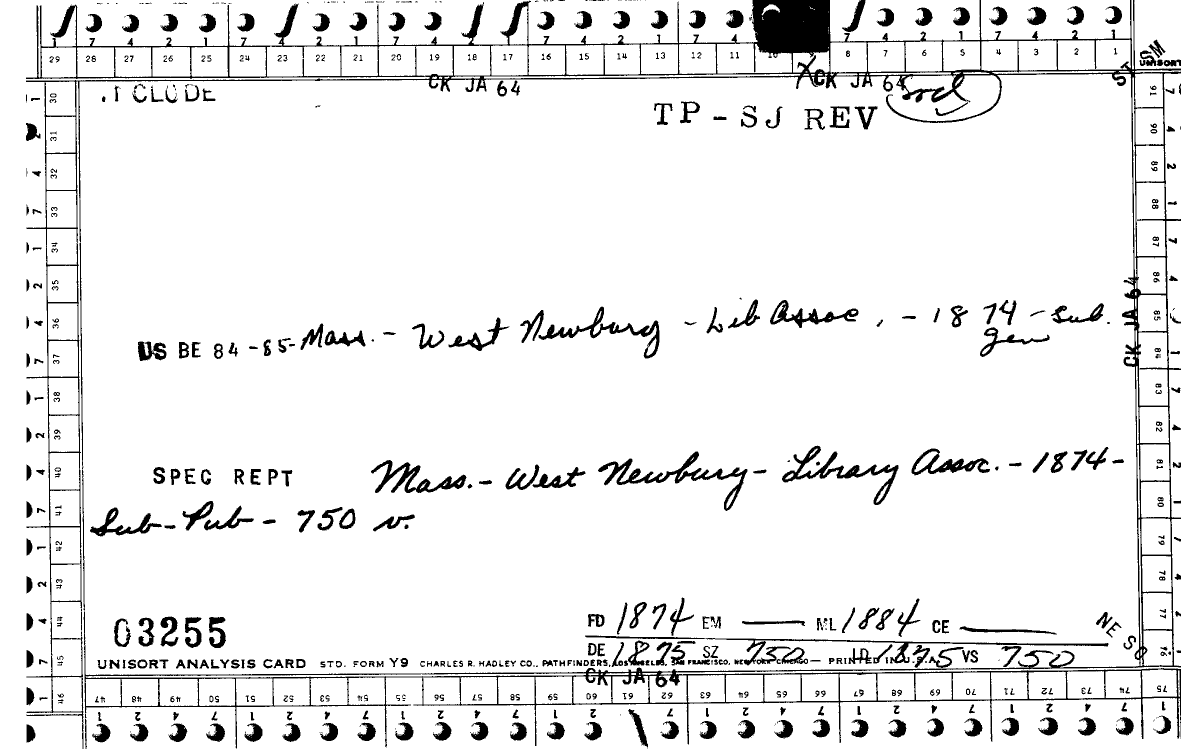 1 7 4 2 1 7 4 2 1 7 4 2 1 7 4 2 1 7 4 2 1 7 4 2 1
29 28 27 26 25 24 23 22 21 20 19 18 17 16 15 14 13 12 11 10 8 7 6 5 4 3 2 1
SM
UNISORT
ST
CK JA 64
CK JA 64
TP - SJ REV
US BE 84-85- Mass. - West Newbury - Lib Assoc. - 1874 - Sub.
Gen
CK JA 64
SPEC REPT Mass. - West Newbury - Library Assoc. - 1874 -
Sub - Pub - 750 v.
03255
FD 1874 EM — ML 1884 CE —
DE 1875 SZ 750 LD 1875 VS 750
NE SO
UNISORT ANALYSIS CARD STD. FORM Y9 CHARLES R. HADLEY CO., PATHFINDERS, LOS ANGELES, SAN FRANCISCO, NEW YORK, CHICAGO — PRINTED IN U.S.A.
CK JA 64
30 31 32 33 34 35 36 37 38 39 40 41 42 43 44 45 46
47 48 49 50 51 52 53 54 55 56 57 58 59 60 61 62 63 64 65 66 67 68 69 70 71 72 73 74 75
76 77 78 79 80 81 82 83 84 85 86 87 88 89 90 91